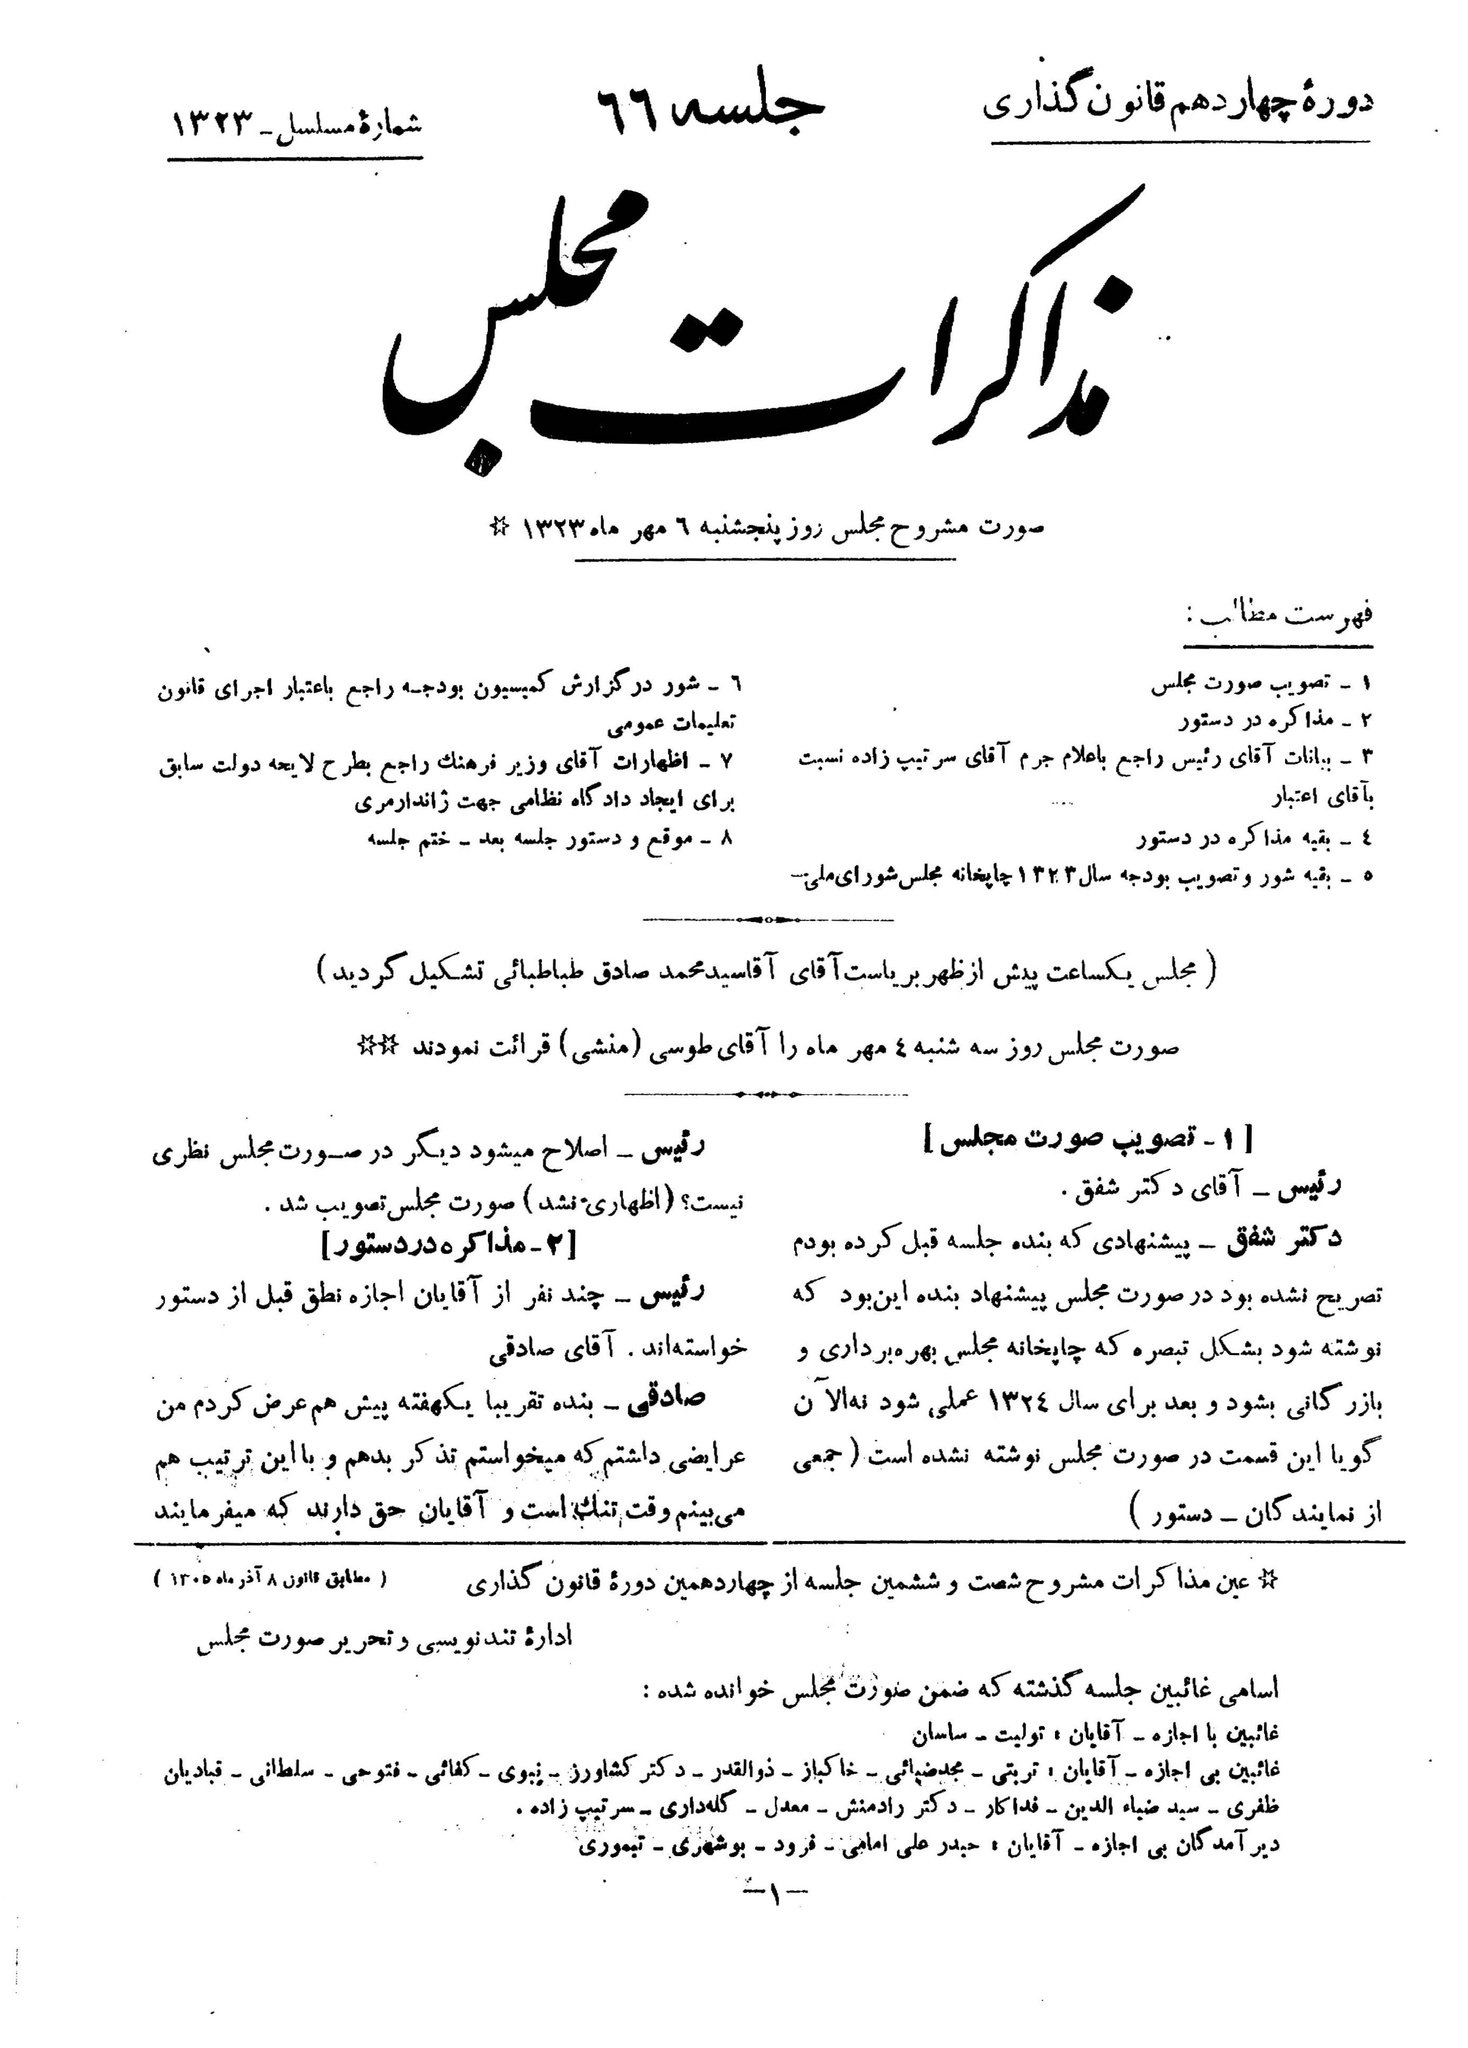 دورهٔ چهاردهم قانون گذاری
جلسه ۶۶
شمارهٔ مسلسل - ۱۳۲۳
مذاکرات مجلس
صورت مشروح مجلس روز پنجشنبه ۶ مهر ماه ۱۳۲۳ ☆
فهرست مطالب :
۱ - تصویب صورت مجلس
۲ - مذاکره در دستور
۳ - بیانات آقای رئیس راجع باعلام جرم آقای سرتیپ زاده نسبت
بآقای اعتبار
٤ - بقیه مذاکره در دستور
٥ - بقیه شور و تصویب بودجه سال ۱۳۲۳ چاپخانه مجلس شورای ملی-
۶ - شور در گزارش کمیسیون بودجه راجع باعتبار اجرای قانون
تعلیمات عمومی
۷ - اظهارات آقای وزیر فرهنك راجع بطرح لایحه دولت سابق
برای ایجاد دادگاه نظامی جهت ژاندارمری
۸ - موقع و دستور جلسه بعد - ختم جلسه
( مجلس یکساعت پیش از ظهر بریاست آقای آقاسید محمد صادق طباطبائی تشکیل گردید )
صورت مجلس روز سه شنبه ٤ مهر ماه را آقای طوسی (منشی) قرائت نمودند ☆☆
[ ۱ - تصویب صورت مجلس ]
رئیس - آقای دکتر شفق .
دکتر شفق - پیشنهادی که بنده جلسه قبل کرده بودم
تصریح نشده بود در صورت مجلس پیشنهاد بنده این بود که
نوشته شود بشکل تبصره که چاپخانه مجلس بهره برداری و
بازرگانی بشود و بعد برای سال ۱۳۲٤ عملی شود نه الآن
گویا این قسمت در صورت مجلس نوشته نشده است ( جمعی
از نمایندگان - دستور )
رئیس - اصلاح میشود دیگر در صورت مجلس نظری
نیست؟ (اظهاری نشد) صورت مجلس تصویب شد .
[ ۲ - مذاکره در دستور ]
رئیس - چند نفر از آقایان اجازه نطق قبل از دستور
خواسته‌اند . آقای صادقی
صادقی - بنده تقریبا یکهفته پیش هم عرض کردم من
عرایضی داشتم که میخواستم تذکر بدهم و با این ترتیب هم
می‌بینم وقت تنك است و آقایان حق دارند که میفرمایند
☆ عین مذاکرات مشروح شصت و ششمین جلسه از چهاردهمین دورهٔ قانون گذاری
( مطابق قانون ۸ آذر ماه ۱۳۰۵ )
ادارهٔ تندنویسی و تحریر صورت مجلس
اسامی غائبین جلسه گذشته که ضمن صورت مجلس خوانده شده :
غائبین با اجازه - آقایان : تولیت - ساسان
غائبین بی اجازه - آقایان : تربتی - مجدضیائی - خاکباز - ذوالقدر - دکتر کشاورز - نبوی - کفائی - فتوحی - سلطانی - قبادیان
ظفری - سید ضیاء الدین - فداکار - دکتر رادمنش - معدل - گله‌داری - سرتیپ زاده .
دیر آمدگان بی اجازه - آقایان : حیدر علی امامی - فرود - بوشهری - تیموری
-۱-